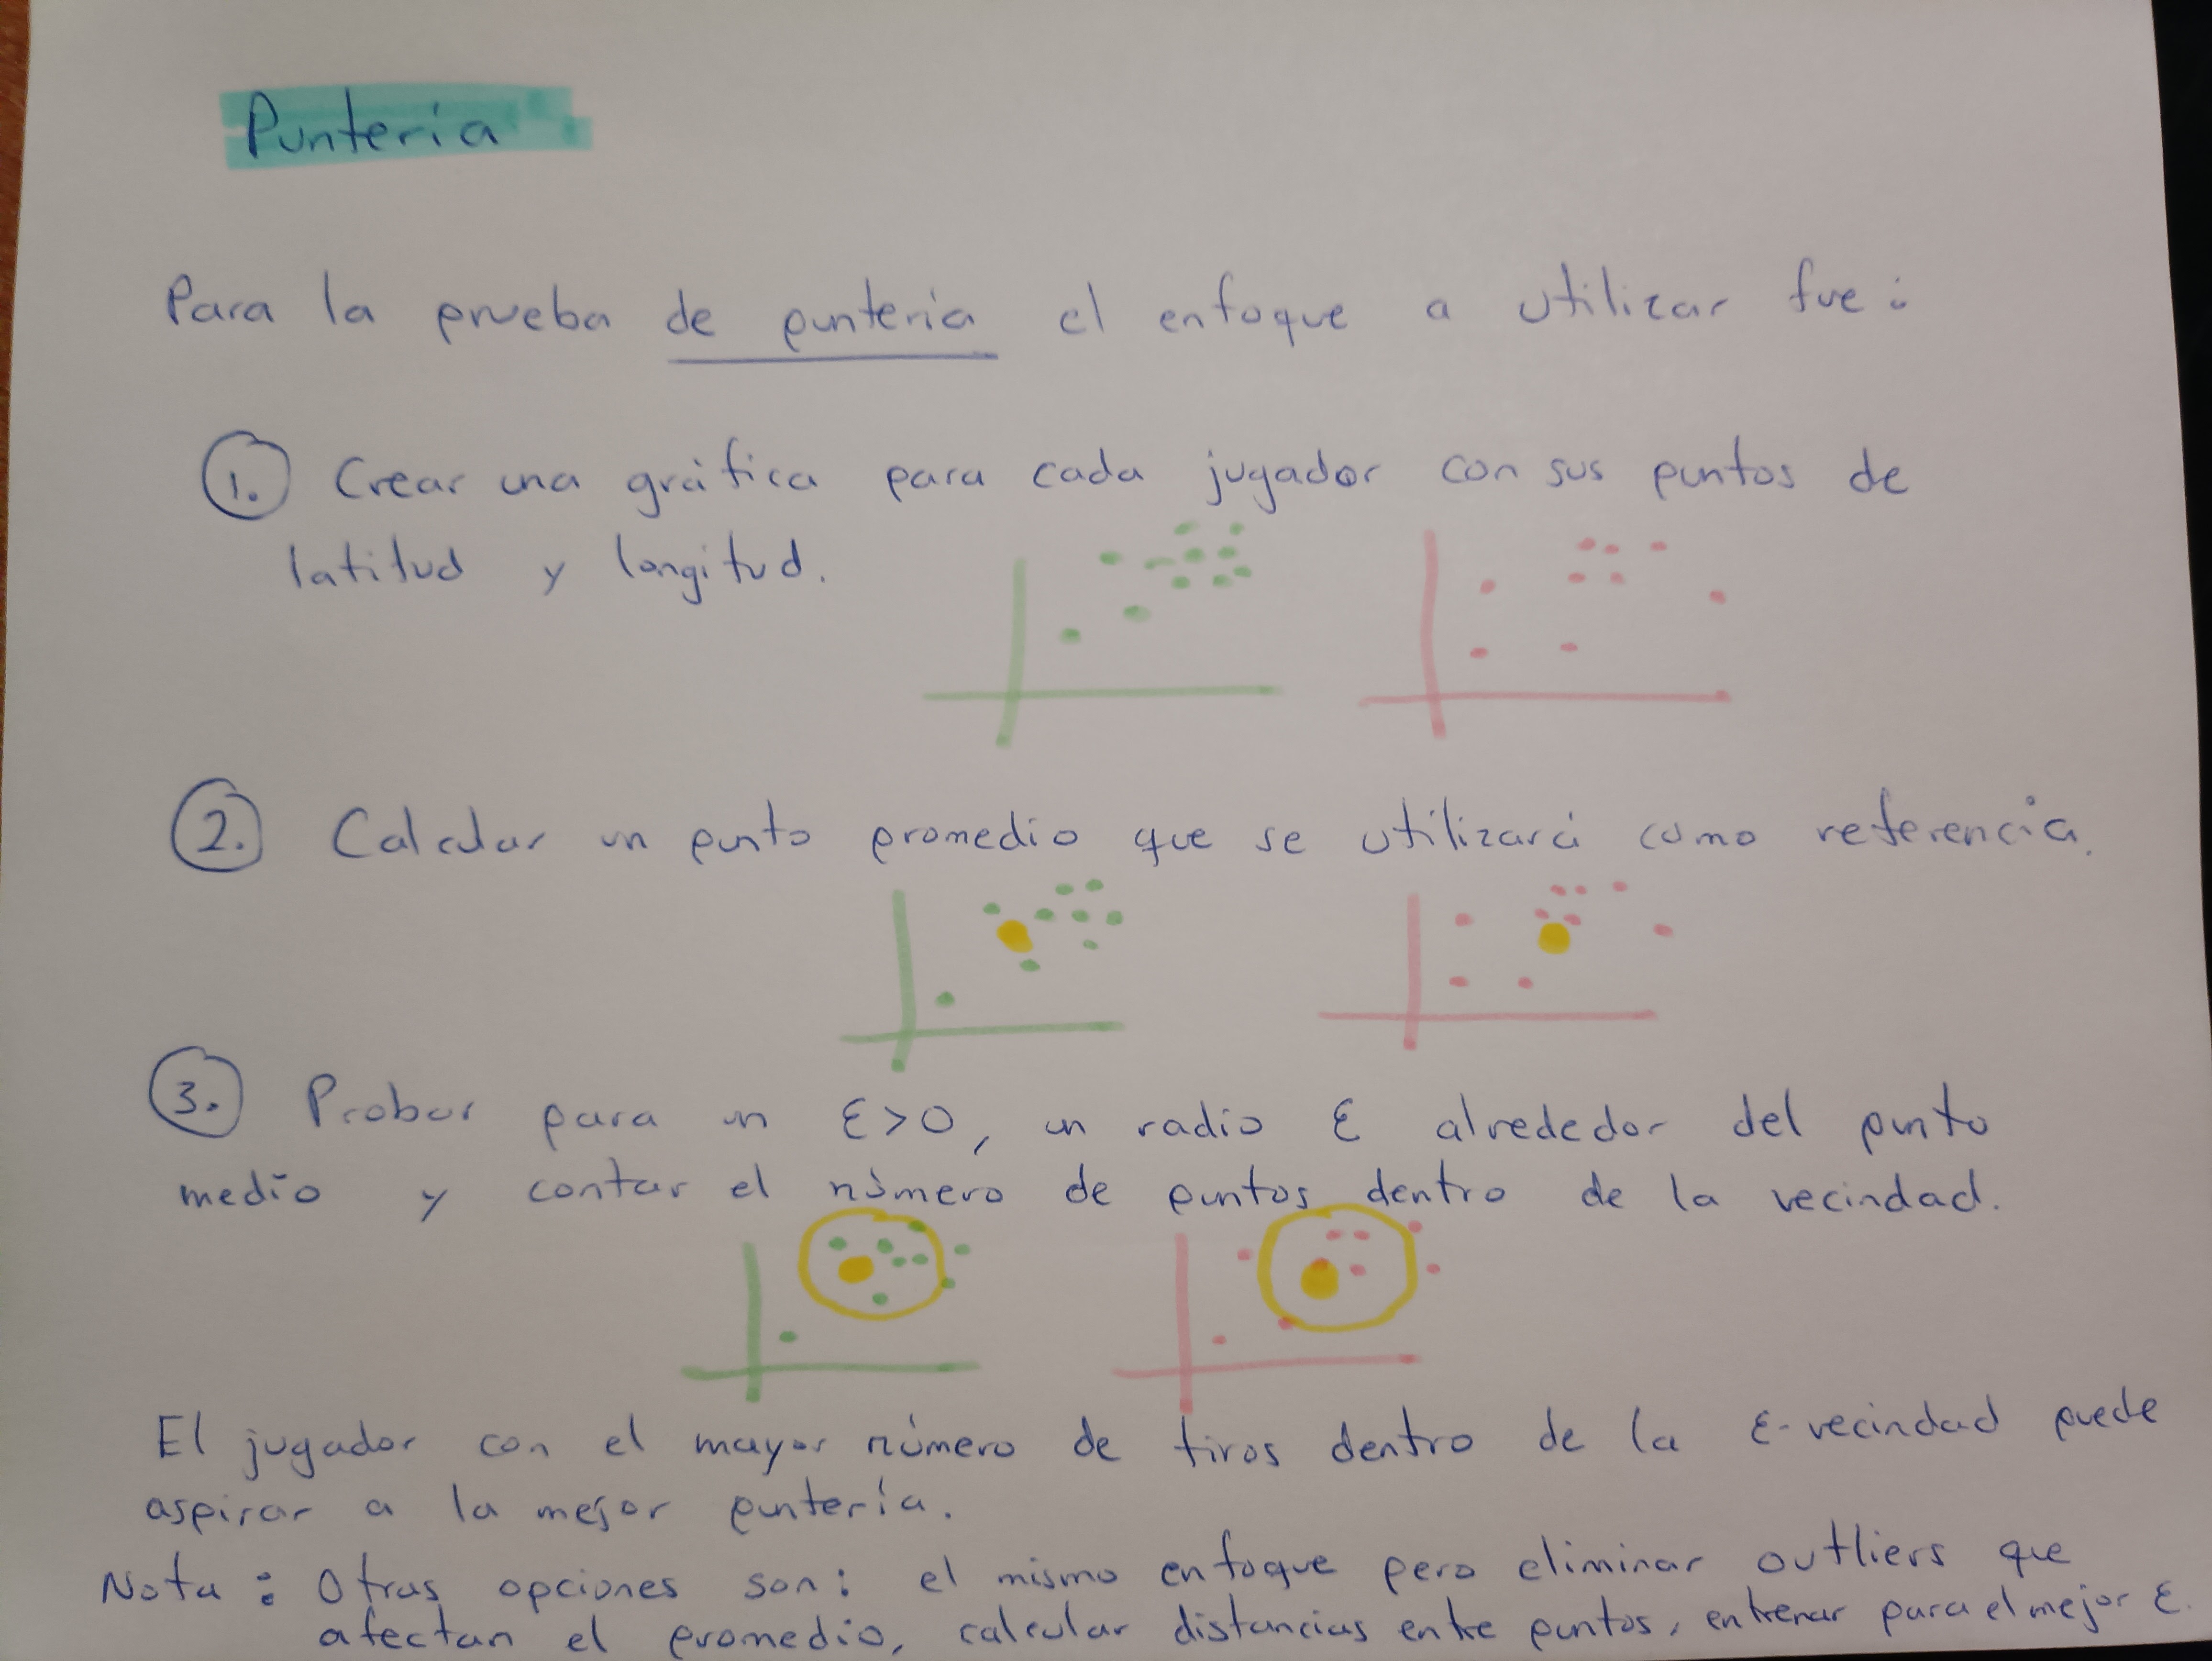 Puntería
Para la prueba de puntería el enfoque a utilizar fue:
1. Crear una gráfica para cada jugador con sus puntos de
latitud y longitud.
2. Calcular un punto promedio que se utilizará como referencia.
3. Probar para un ε>0, un radio ε alrededor del punto
medio y contar el número de puntos dentro de la vecindad.
El jugador con el mayor número de tiros dentro de la ε-vecindad puede
aspirar a la mejor puntería.
Nota: Otras opciones son: el mismo enfoque pero eliminar outliers que
afectan el promedio, calcular distancias entre puntos, entrenar para el mejor ε.